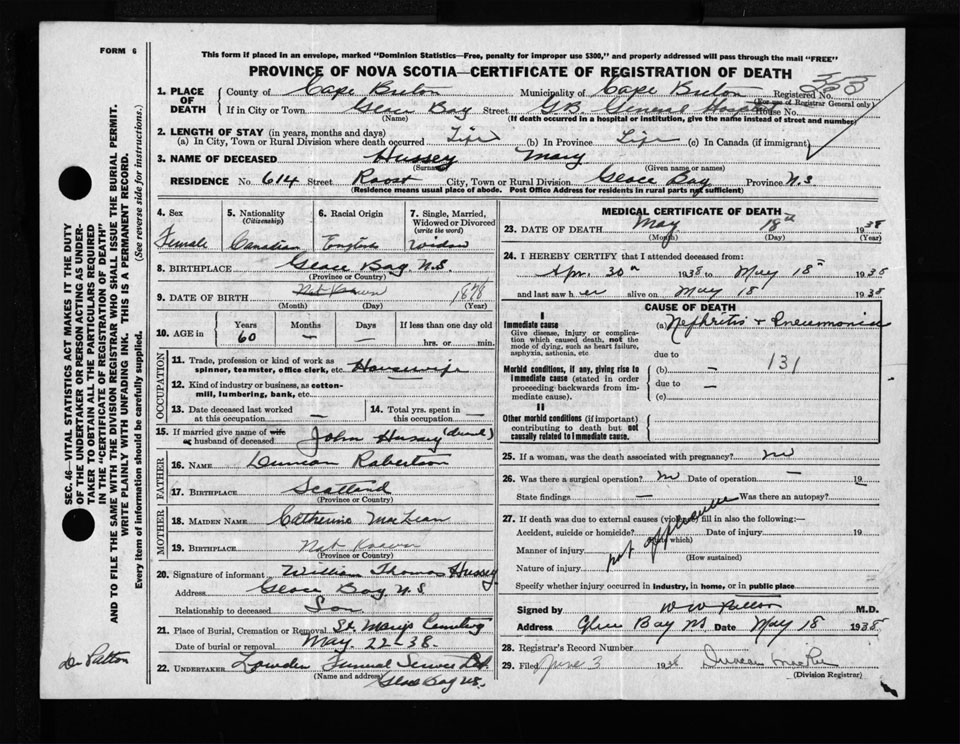 FORM 6
This form if placed in an envelope, marked "Dominion Statistics—Free, penalty for improper use $300," and properly addressed will pass through the mail "FREE"
PROVINCE OF NOVA SCOTIA—CERTIFICATE OF REGISTRATION OF DEATH
353
1. PLACE OF DEATH
County of Cape Breton Municipality of Cape Breton Registered No.
(For use of Registrar General only)
If in City or Town Glace Bay Street G.B. General Hospital House No.
(Name) (If death occurred in a hospital or institution, give the name instead of street and number)
2. LENGTH OF STAY (in years, months and days)
(a) In City, Town or Rural Division where death occurred Life (b) In Province Life (c) In Canada (if immigrant)
3. NAME OF DECEASED Hussey Mary
(Surname) (Given name or names)
RESIDENCE No. 614 Street Roost City, Town or Rural Division Glace Bay Province N.S.
(Residence means usual place of abode. Post Office Address for residents in rural parts not sufficient)
4. Sex
Female
5. Nationality
(Citizenship)
Canadian
6. Racial Origin
English
7. Single, Married, Widowed or Divorced
(write the word)
Widow
8. BIRTHPLACE Glace Bay N.S.
(Province or Country)
9. DATE OF BIRTH Not Known 1878
(Month) (Day) (Year)
10. AGE in
Years Months Days If less than one day old
60 — — hrs. or min.
OCCUPATION
11. Trade, profession or kind of work as
spinner, teamster, office clerk, etc. Housewife
12. Kind of industry or business, as cotton-
mill, lumbering, bank, etc.
13. Date deceased last worked
at this occupation —
14. Total yrs. spent in
this occupation —
15. If married give name of wife
or husband of deceased John Hussey (dead)
FATHER
16. NAME Duncan Robertson
17. BIRTHPLACE Scotland
(Province or Country)
MOTHER
18. MAIDEN NAME Catherine MacLean
19. BIRTHPLACE Not Known
(Province or Country)
20. Signature of informant William Thomas Hussey
Address Glace Bay N.S
Relationship to deceased Son
21. Place of Burial, Cremation or Removal St. Mary's Cemetery
Date of burial or removal May 22 - 38.
22. UNDERTAKER Lowden Funeral Service
(Name and address) Glace Bay N.S.
MEDICAL CERTIFICATE OF DEATH
23. DATE OF DEATH May 18th 1938
(Month) (Day) (Year)
24. I HEREBY CERTIFY that I attended deceased from:
Apr. 30th 1938 to May 18th 1938
and last saw her alive on May 18 1938
CAUSE OF DEATH
I
Immediate cause
Give disease, injury or complication which caused death, not the mode of dying, such as heart failure, asphyxia, asthenia, etc
(a) Nephritis + Pneumonia
due to
131
Morbid conditions, if any, giving rise to immediate cause (stated in order proceeding backwards from immediate cause).
(b) —
due to —
(c)
II
Other morbid conditions (if important) contributing to death but not causally related to immediate cause.
25. If a woman, was the death associated with pregnancy? no
26. Was there a surgical operation? no Date of operation — 19
State findings — Was there an autopsy?
27. If death was due to external causes (violence) fill in also the following:—
Accident, suicide or homicide? (State which) Date of injury 19
Manner of injury (How sustained)
not applicable
Nature of injury
Specify whether injury occurred in industry, in home, or in public place
Signed by M.D.
Address Glace Bay NS Date May 18 1938
28. Registrar's Record Number
29. Filed June 3 1938 Duncan
(Division Registrar)
SEC. 46—VITAL STATISTICS ACT MAKES IT THE DUTY
OF THE UNDERTAKER OR PERSON ACTING AS UNDER-
TAKER TO OBTAIN ALL THE PARTICULARS REQUIRED
IN THE "CERTIFICATE OF REGISTRATION OF DEATH"
AND TO FILE THE SAME WITH THE DIVISION REGISTRAR WHO SHALL ISSUE THE BURIAL PERMIT.
WRITE PLAINLY WITH UNFADING INK. THIS IS A PERMANENT RECORD.
Every item of information should be carefully supplied. (See reverse side for instructions.)
Dr Patton